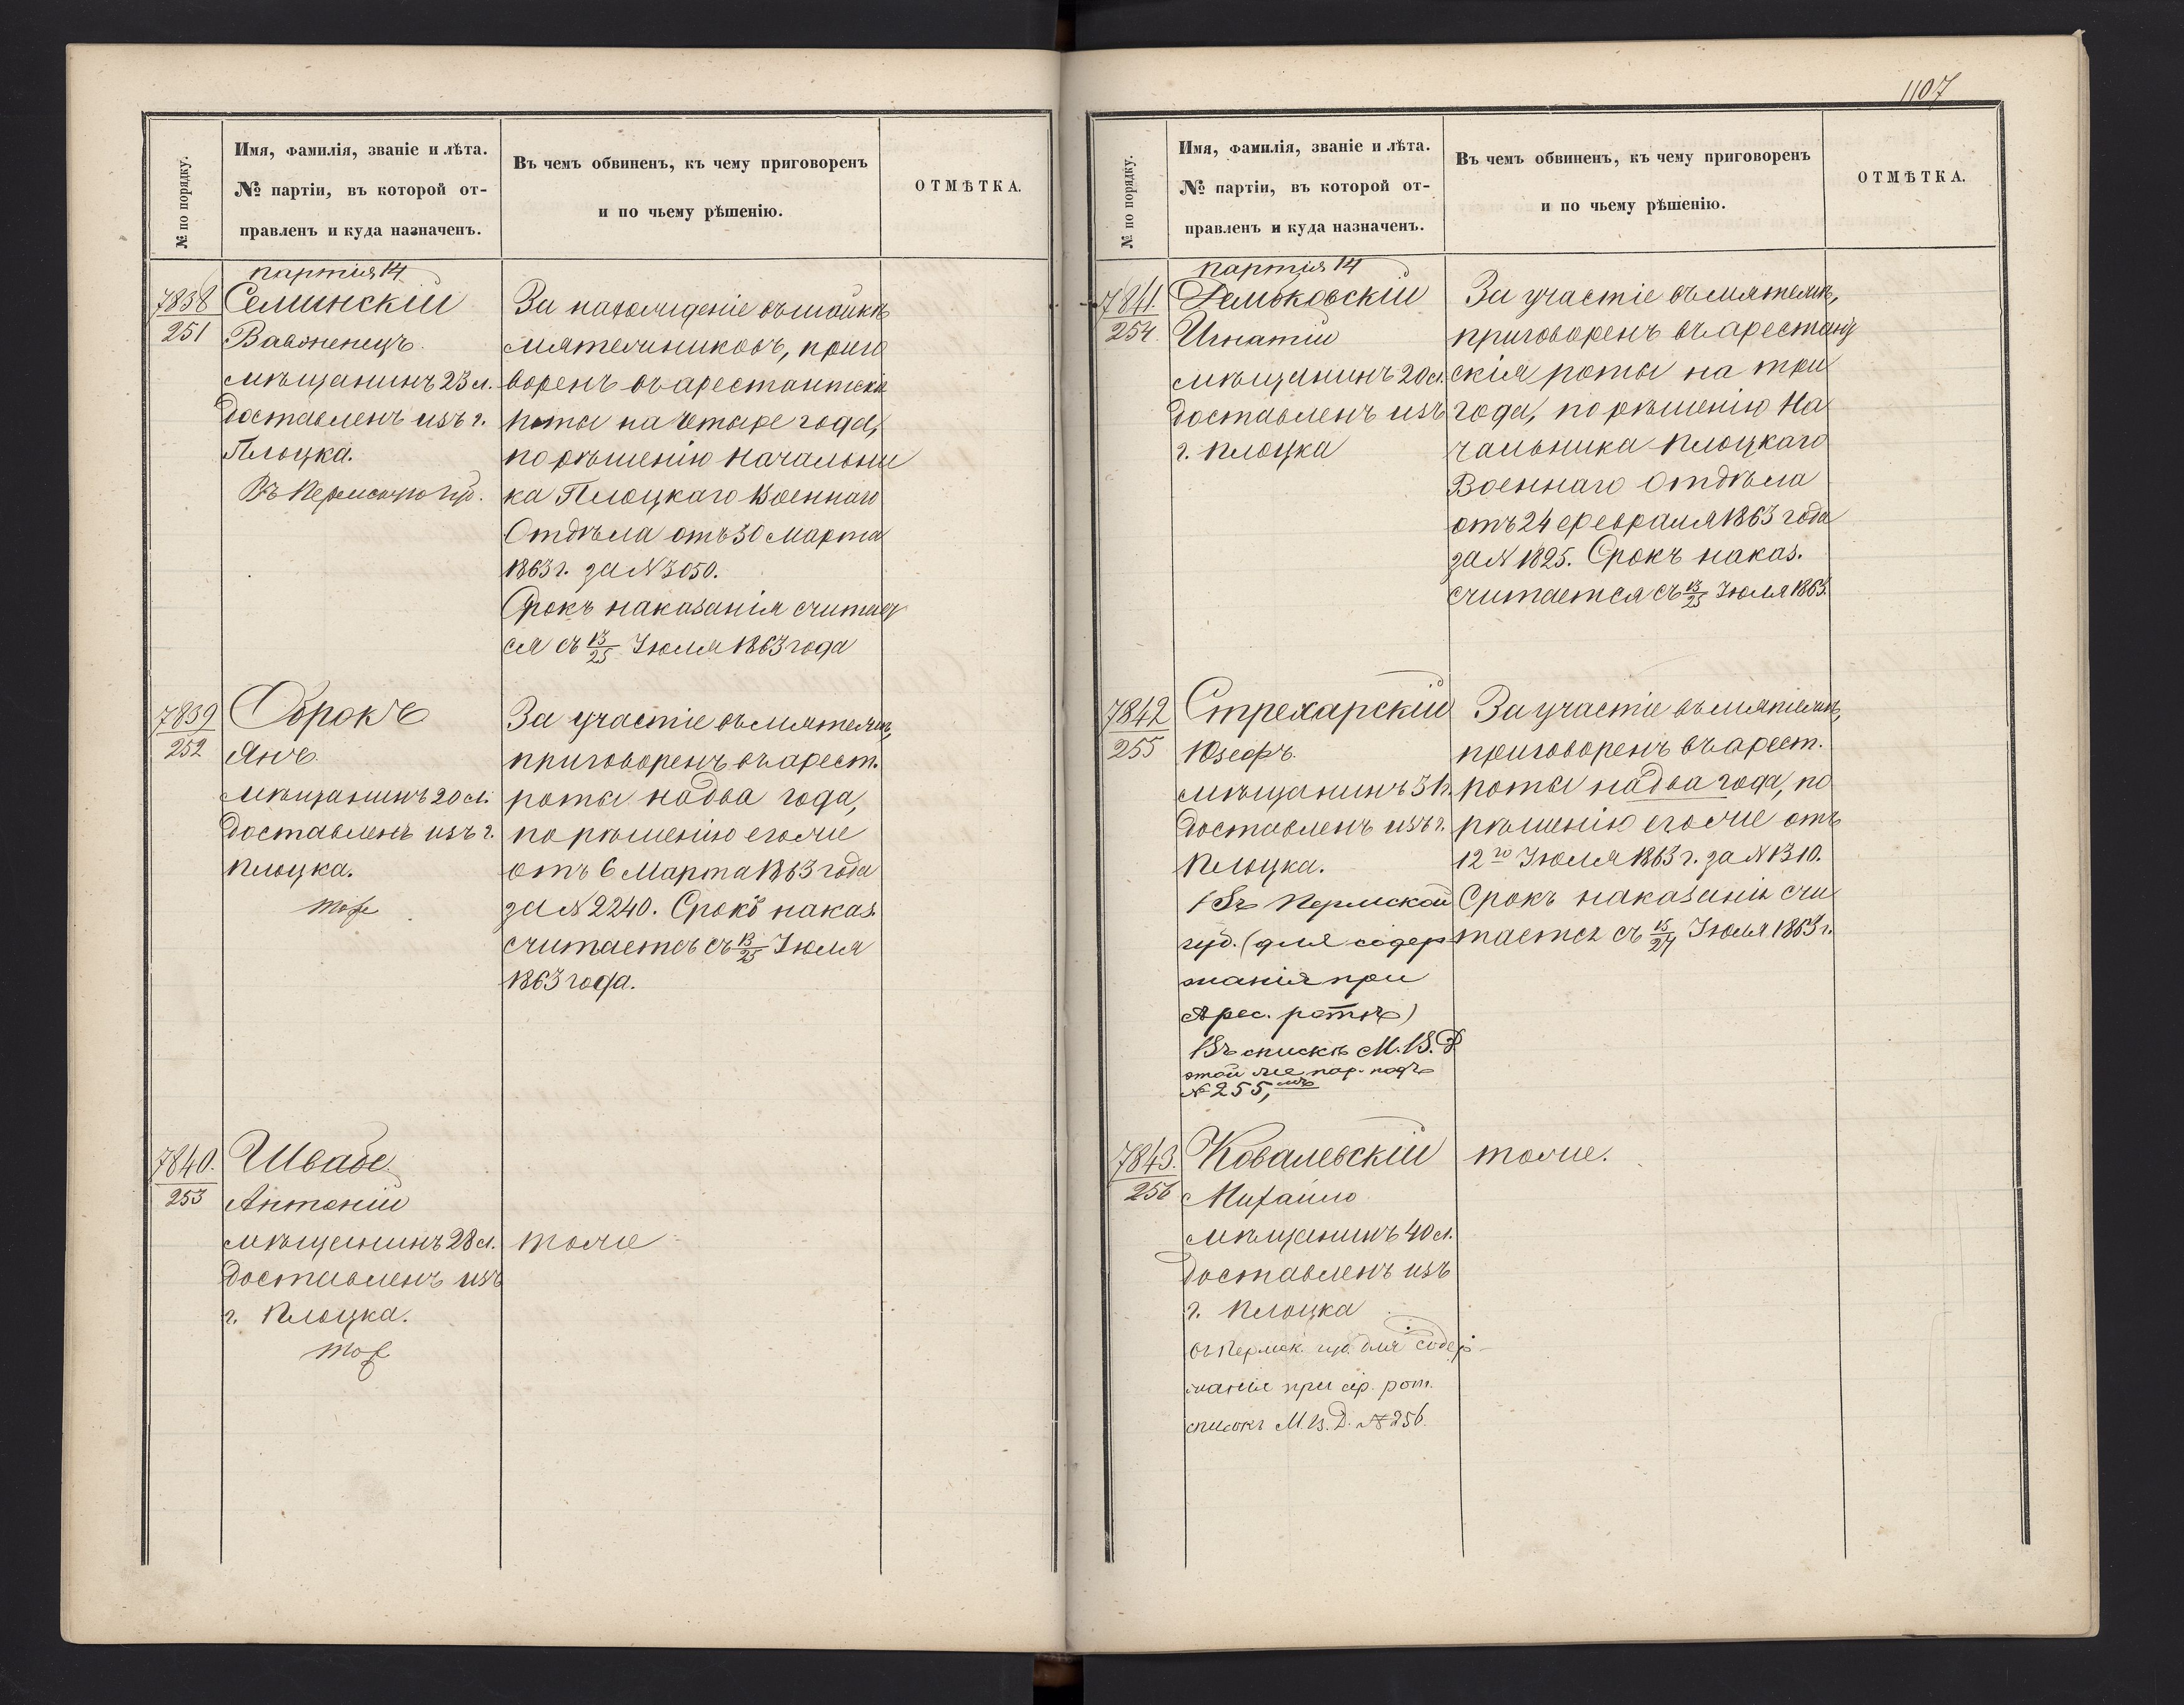 № по порядку.
Имя, фамилія, званіе и лѣта.
№ партіи, въ которой от-
правленъ и куда назначенъ.
Въ чемъ обвиненъ, къ чему приговоренъ
и по чьему рѣшенію.
ОТМѢТКА.
партія 14
7838
251
Семинскій
Вавженецъ.
мѣщанинъ 23 л.
доставленъ изъ г.
Плоцка.
Въ Пермскую губ.
За нахожденіе въ шайкѣ
мятежниковъ, приго
воренъ въ арестантскія
роты на четыре года,
по рѣшенію Начальни
ка Плоцкаго Военнаго
Отдѣла отъ 30 Марта
1863 г. за N 3050.
Срокъ наказанія считает
ся съ 13/25 Іюля 1863 года
7839
252
Оброкъ
Янъ.
мѣщанинъ 20 л.
доставленъ изъ г.
Плоцка.
тоже
За участіе въ мятежѣ,
приговоренъ въ арест.
роты на два года,
по рѣшенію егоже
отъ 6 Марта 1863 года
за N 2240. Срокъ наказ.
считается съ 13/25 Іюля
1863 года.
7840.
253
Швабе
Антоній
мѣщанинъ 28 л.
доставленъ изъ
г. Плоцка.
тоже
тоже
1107
№ по порядку.
Имя, фамилія, званіе и лѣта.
№ партіи, въ которой от-
правленъ и куда назначенъ.
Въ чемъ обвиненъ, къ чему приговоренъ
и по чьему рѣшенію.
ОТМѢТКА.
партія 14
7841.
254.
Игнатій
мѣщанинъ 20 л.
доставленъ изъ
г. Плоцка
За участіе въ мятежѣ,
приговоренъ въ арестант
скія роты на три
года, по рѣшенію На
чальника Плоцкаго
Военнаго Отдѣла
отъ 24 февраля 1863 года
за N 1825. Срокъ наказ.
считается съ 13/25 Іюля 1863.
7842
255
Стрехарскій
Юзефъ.
мѣщанинъ 31 л.
доставленъ изъ г.
Плоцка.
Въ Пермской
губ. (для содер
жанія при
Арес. ротѣ)
Въ спискѣ М. В. Д
этой же пар. подъ
№ 255,
За участіе въ мятежѣ,
приговоренъ въ арест.
роты на два года, по
рѣшенію егоже отъ
12го Іюля 1863 г. за N 1310.
Срокъ наказанія счи
тается съ 15/27 Іюля 1863 г.
7843.
256
Ковалевскій
Михайло
мѣщанинъ 40 л.
доставленъ изъ
г. Плоцка
въ Пермск. губ. для содер-
жанія при ар. рот.
списокъ М. В. Д. № 256.
тоже.